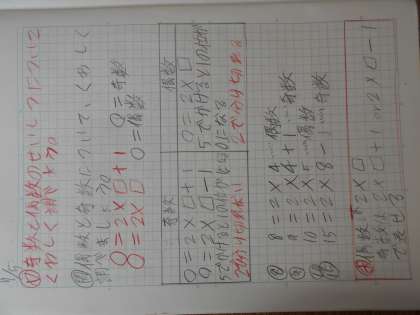 4/5
め 奇数と偶数のせいしつについて
くわしく調べよう。
問 偶数と奇数について、くわしく
調べましょう。
○=2×□+1 ○=奇数
○=2×□ ○=偶数
奇数
○=2×□+1
○=2×□-1
2でわり切れない
偶数
○=2×□
5でかけると1の位が
0になる
2でわり切れる
8=2×4 偶数
9=2×4+1…奇数
10=2×5…偶数
15=2×8-1…奇数
偶数は2×□
奇数は2×□+1,2×□-1
で表せる